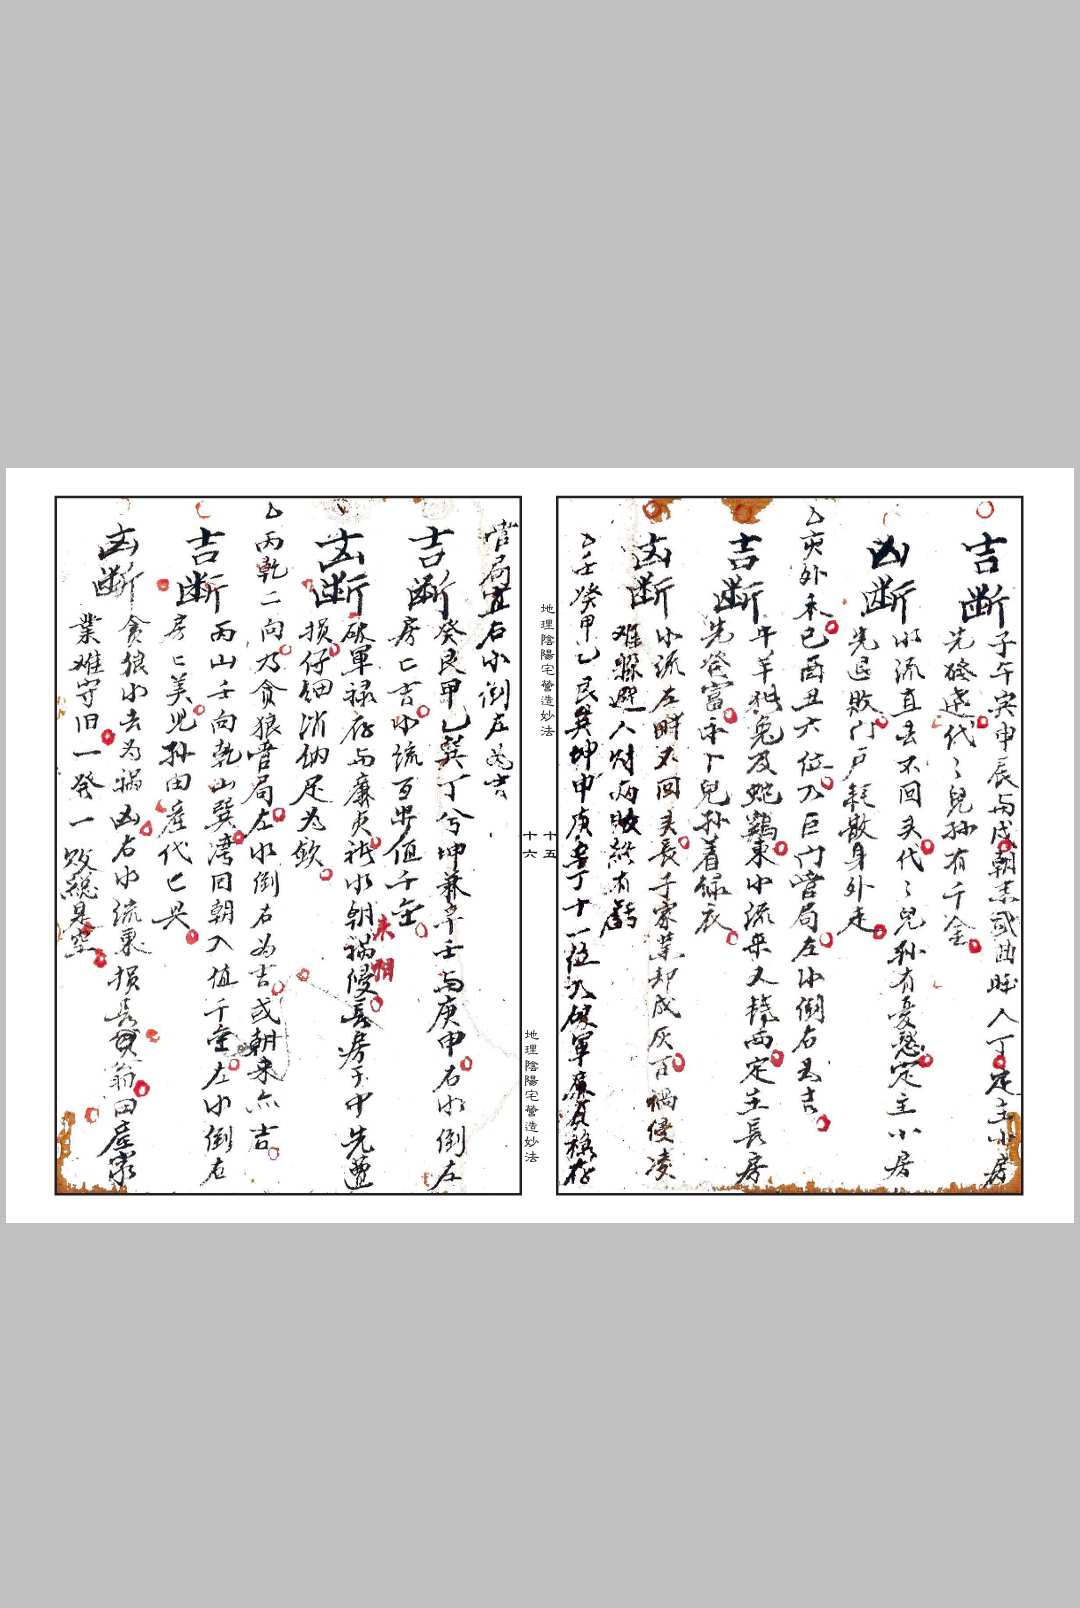 吉断
子午寅申辰与戌朝來武曲旺人丁定主小房
先發達代〻兒孙有千金
凶断
水流直去不回头代〻兒孙有憂愁定主小房
先退敗门户耗散身外走
乙亥外未巳酉丑六位乃巨门营局左水倒右为吉
吉断
牛羊猪兔及蛇鷄東水流來入龍西定主長房
先發富
兒孙着緑衣
凶断
水流左畔不回头長子家業却成灰百禍侵凌
难躲避人财两败終有虧
乙壬癸甲乙艮巽坤申庚辛丁十一位乃破軍廉贞禄存
地理陰陽宅營造妙法
十五
营局宜右水倒左为吉
吉断
癸艮甲乙巽丁兮坤兼辛壬与庚申右水倒左
房〻吉水流
值千金
凶断
破軍禄存与廉贞
水朝禍侵長房子中先遭
來朝
损仔细消纳足为欽
乙丙乾二向乃貪狼营局左水倒右为吉或朝來亦吉
吉断
丙山壬向乾山巽湾回朝入值千金左水倒右
房〻美兒孙田產代〻興
凶断
貪狼水去为禍凶右水流東损長
翁田產家
業难守旧一發一敗總是空
十六
地理陰陽宅營造妙法